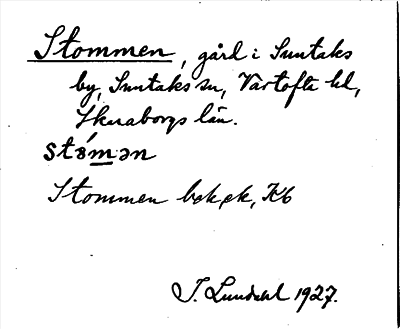 Stommen, gård i Suntaks
by, Suntaks sn, Vartofta hd,
Skaraborgs län.
stómən
Stommen bok, ek, Kb
I. Lundahl 1927.